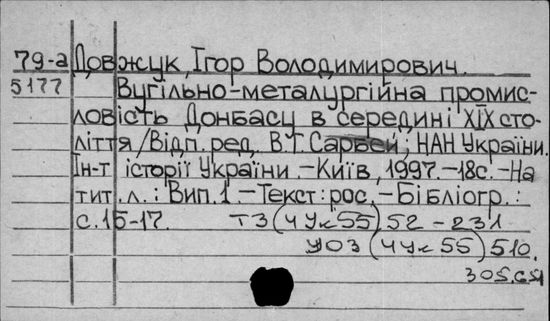 79-а Довжук, Ігор Володимирович.
5177 Вугільно-металургійна промис-
ловість Донбасу в середині XIX сто-
ліття / Відп. ред. В.Г. Сарбей; НАН України.
Ін-т історії України. - Київ, 1997. - 18с. - На
тит. л.: Вип. 1. - Текст: рос. - Бібліогр.:
с. 15-17. Т3(4Ук55)52-231
У03(4Ук55)510.